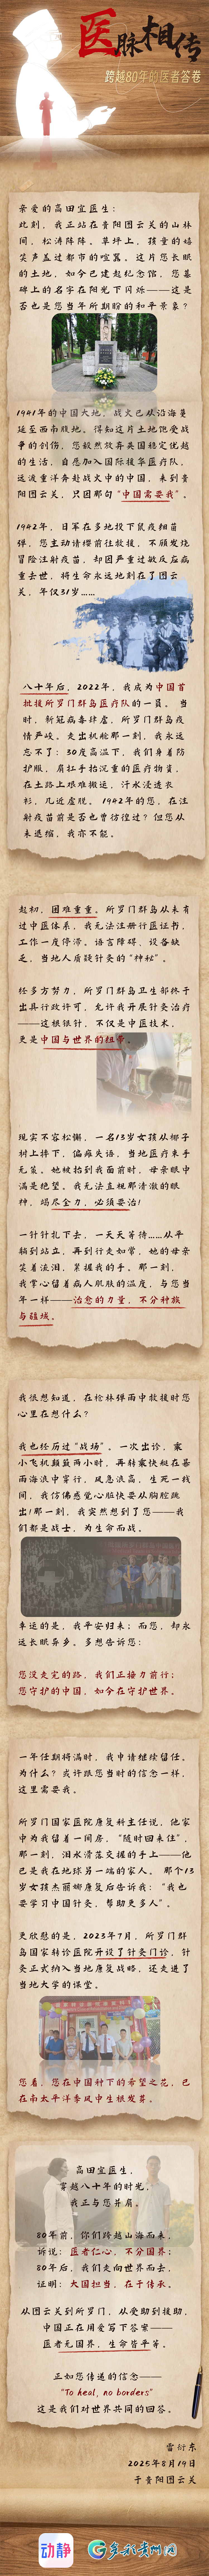 医脉相传
跨越80年的医者答卷
亲爱的高田宜医生：
此刻，我正站在贵阳图云关的山林
间，松涛阵阵。草坪上，孩童的嬉
笑声盖过都市的喧嚣。这片您长眠
的土地，如今已建起纪念馆，您墓
碑上的名字在阳光下闪烁——这是
否也是您当年所期盼的和平景象？
1941年的中国大地，战火已从沿海蔓
延至西南腹地。得知这片土地饱受战
争的创伤，您毅然放弃英国稳定优越
的生活，自愿加入国际援华医疗队，
远渡重洋奔赴战火中的中国，来到贵
阳图云关，只因那句“中国需要我”。
1942年，日军在多地投下鼠疫细菌
弹，您主动请缨前往救援，不顾发烧
冒险注射疫苗，却因严重过敏反应病
重去世，将生命永远地刻在了图云
关，年仅31岁……
八十年后，2022年，我成为中国首
批援所罗门群岛医疗队的一员。当
时，新冠病毒肆虐，所罗门群岛疫
情严峻。走出机舱那一刻，我永远
忘不了：30度高温下，我们身着防
护服，肩扛手抬沉重的医疗物资，
在土路上艰难搬运，汗水浸透衣
衫，几近虚脱。1942年的您，在注
射疫苗前是否也曾彷徨过？但您从
未退缩，我亦不能。
起初，困难重重。所罗门群岛从未有
过中医体系，我无法注册行医证书，
工作一度停滞。语言障碍，设备缺
乏，当地人质疑针灸的“神秘”。
经多方努力，所罗门群岛卫生部终于
出具行政许可，允许我开展针灸治疗
——这根银针，不仅是中医技术，
更是中国与世界的纽带。
现实不容松懈，一名13岁女孩从椰子
树上摔下，偏瘫失语，当地医疗束手
无策。她被抬到我面前时，母亲眼中
满是绝望。我无法直视那清澈的眼
神，竭尽全力，必须要治！
一针针扎下去，一天天等待……从平
躺到站立，再到行走如常，她的母亲
笑着流泪，紧握我的手。那一刻，
我掌心留着病人肌肤的温度，与您当
年一样——治愈的力量，不分种族
与疆域。
我很想知道，在枪林弹雨中救援时您
心里在想什么？
我也经历过“战场”。一次出诊，乘
小飞机颠簸两小时，再转乘快艇在暴
雨海浪中穿行，风急浪高，生死一线
间，我仿佛感觉心脏快要从胸腔跳
出！那一刻，我突然想到了您——我
们都是战士，为生命而战。
幸运的是，我平安归来；而您，却永
远长眠异乡。多想告诉您：
您没走完的路，我们正接力前行；
您守护的中国，如今在守护世界。
一年任期将满时，我申请继续留任。
为什么？或许跟您当时的信念一样，
这里需要我。
所罗门国家医院康复科主任说，他家
中为我留着一间房，“随时回来住”，
那一刻，泪水滑落交握的手上——他
已是我在地球另一端的家人。那个13
岁女孩杰丽娜康复后告诉我：“我也
要学习中国针灸，帮助更多人”。
更欣慰的是，2023年7月，所罗门群
岛国家转诊医院开设了针灸门诊，针
灸正式纳入当地康复战略，还走进了
当地大学的课堂。
您看，您在中国种下的希望之花，已
在南太平洋季风中生根发芽。
高田宜医生，
穿越八十年的时光，
我正与您并肩。
80年前，你们跨越山海而来，
诉说：医者仁心，不分国界；
80年后，我们走向世界而去，
证明：大国担当，在于传承。
从图云关到所罗门，从受助到援助，
中国正在用爱写下答案——
医者无国界，生命皆平等。
正如您传递的信念——
“To heal, no borders”
这是我们对世界共同的回答。
雷衍东
2025年8月19日
于贵阳图云关
动静
多彩贵州网